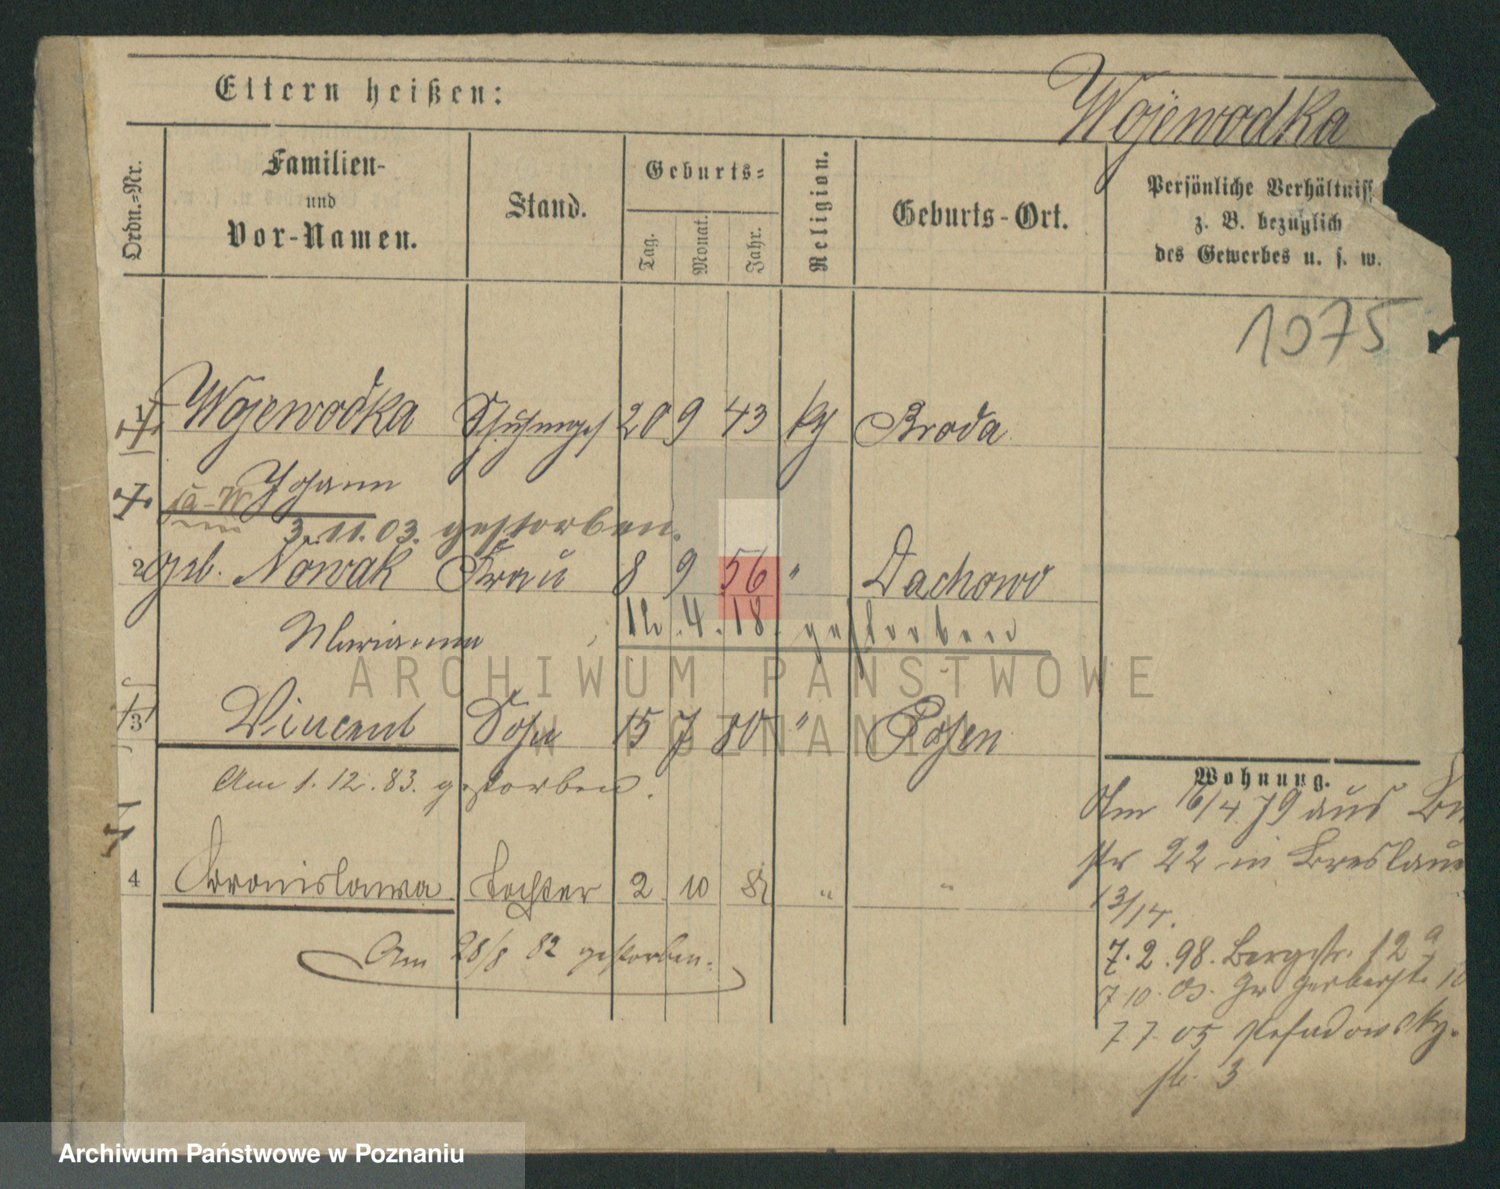 Eltern heißen:
Wojewodka
Ordn.=Nr.
Familien-
und
Vor-Namen.
Stand.
Geburts=
Tag.
Monat.
Jahr.
Religion.
Geburts-Ort.
Persönliche Verhältniss
z. B. bezüglich
des Gewerbes u. s. w.
1075
1 Wojewodka 20 9 43 kth Broda
Johann
3. 11. 03. gestorben.
2 geb. Nowak Frau 8 9 56 " Dachowo
Marianna 12. 4. 18. gestorben
ARCHIWUM PAŃSTWOWE
W POZNANIU
3 Vincent Sohn 15 7 80 " Posen
Am 1. 12. 83. gestorben.
4 Bronislawa Tochter 2 10 81 " "
Am 28/8 82 gestorben.
Wohnung.
Am 16/4. 79 aus
str 22 in Breslau
13/14.
7. 2. 98. Bergstr. 12 a
7 10. 03. Gr Gerberstr. 10
7 7. 05
str. 3
Archiwum Państwowe w Poznaniu